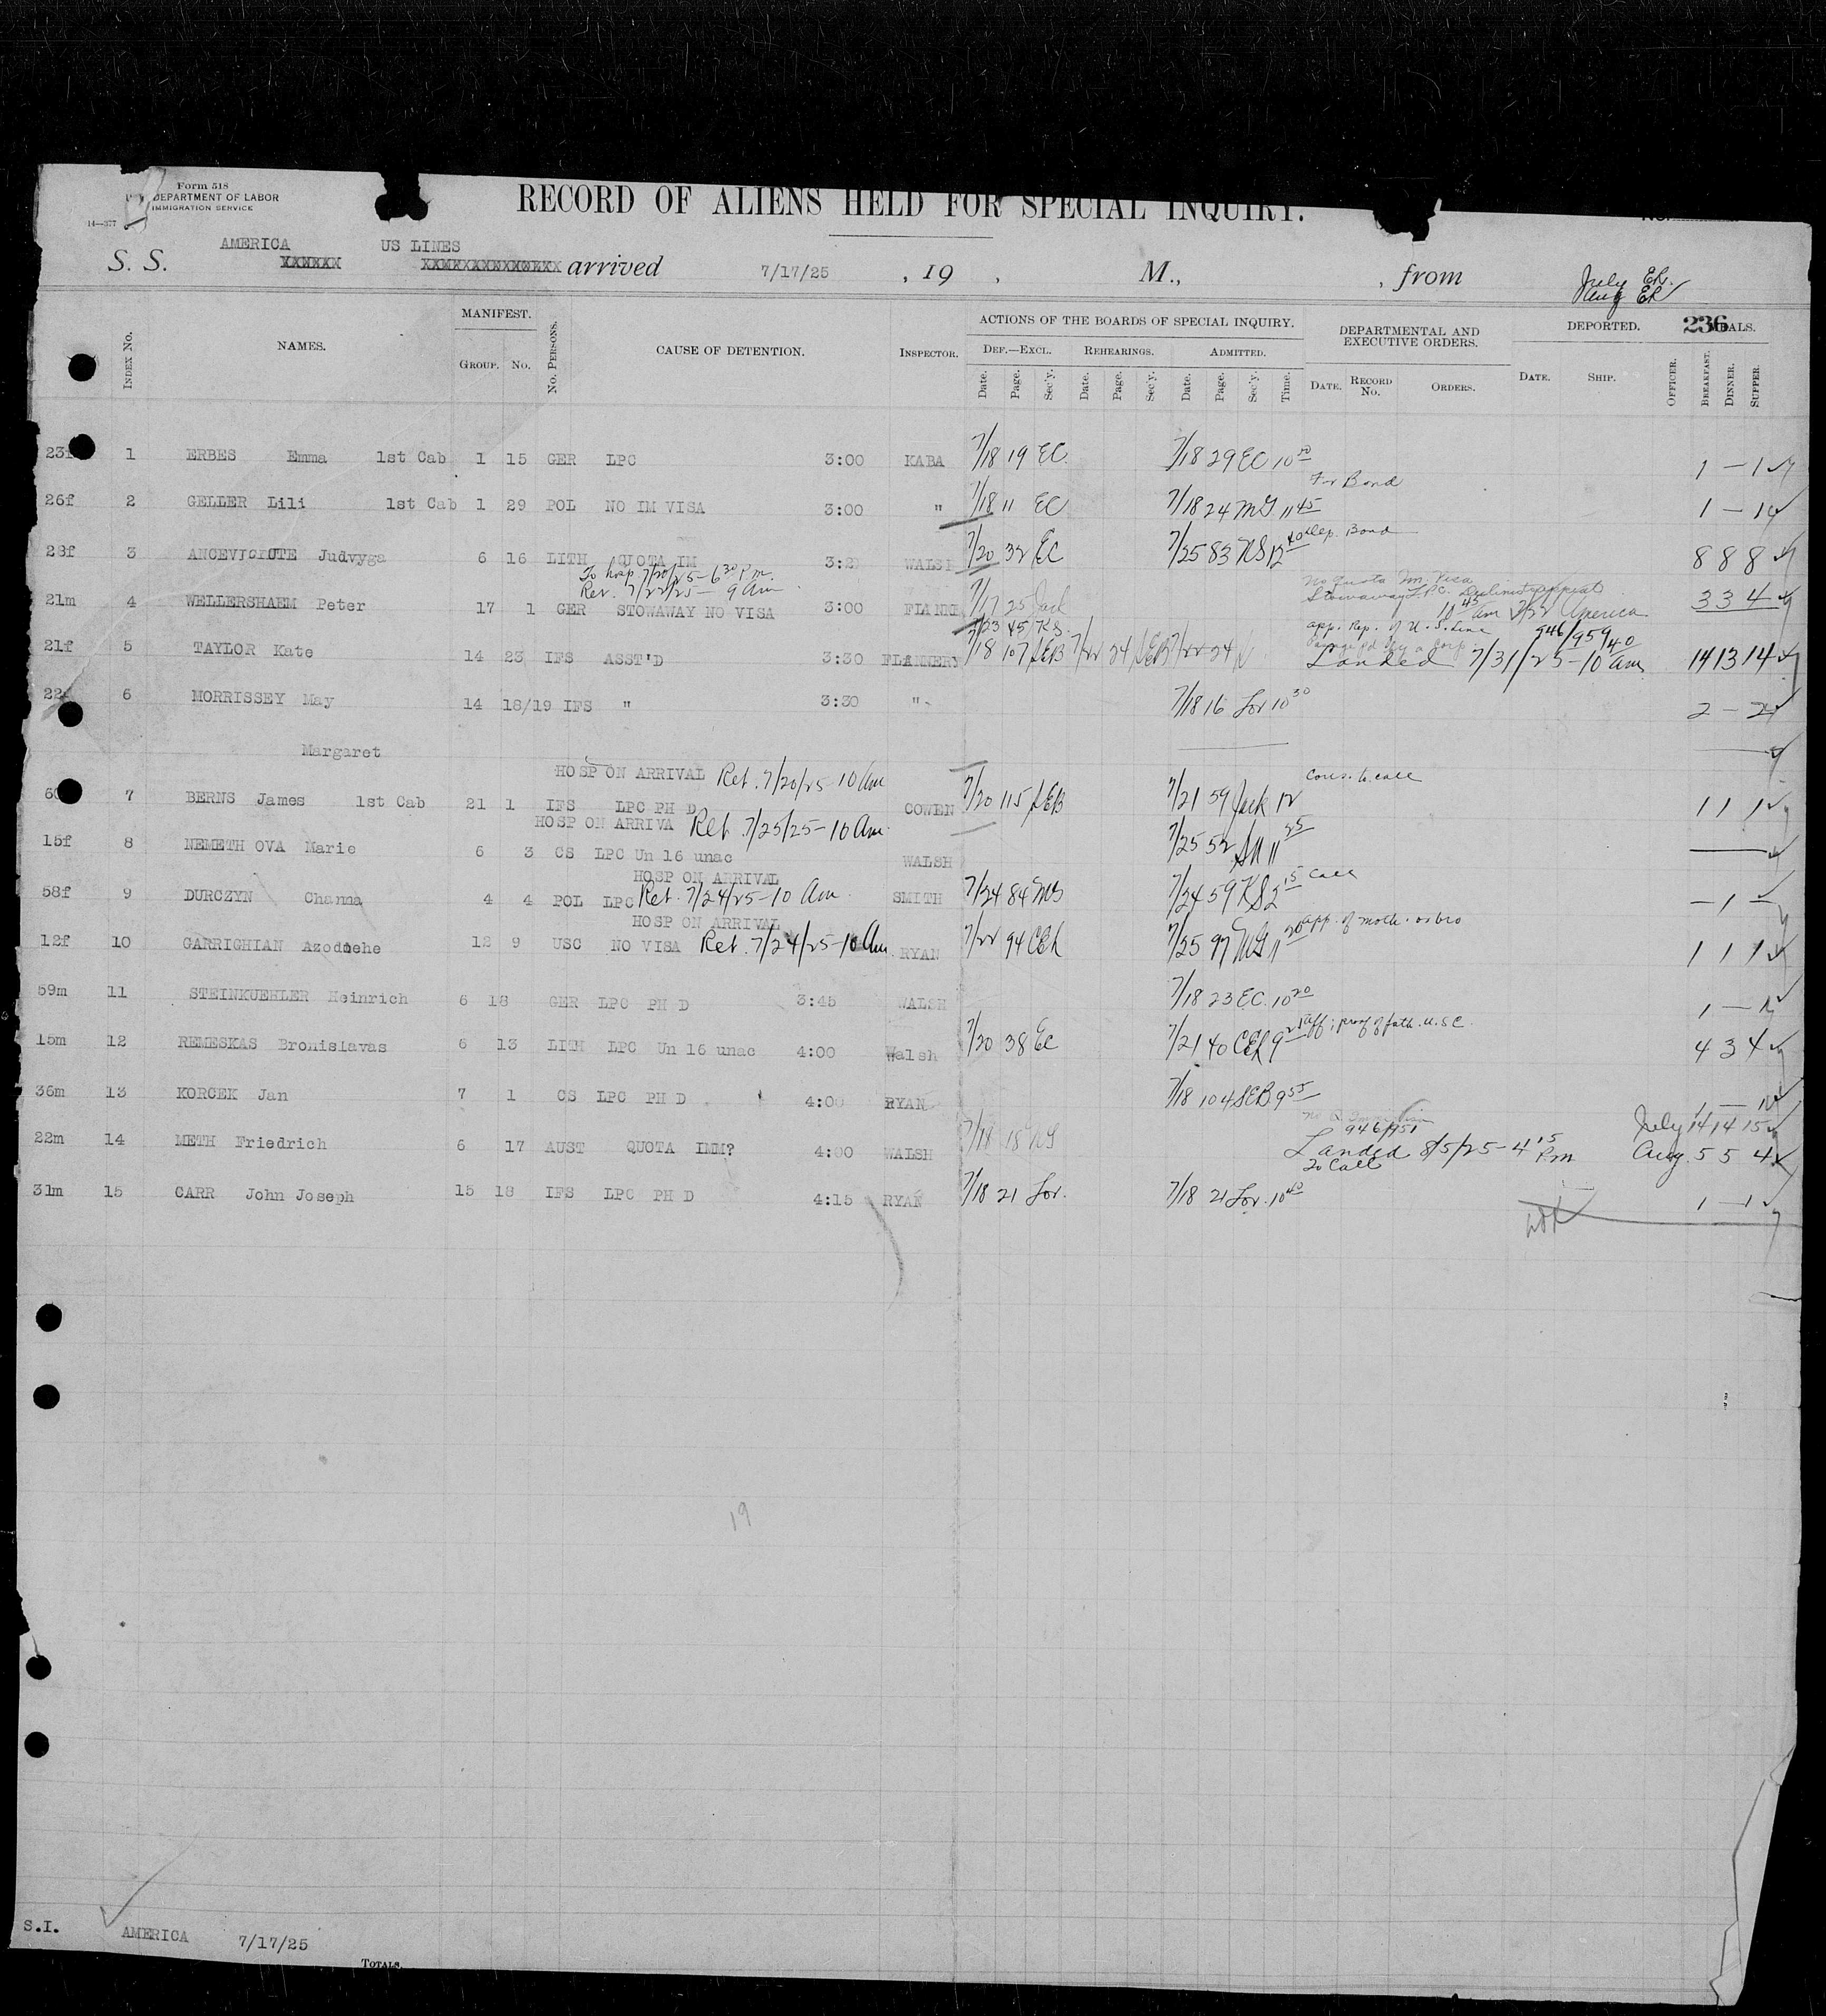 Form 518
DEPARTMENT OF LABOR
IMMIGRATION SERVICE
14—377
RECORD OF ALIENS HELD FOR SPECIAL INQUIRY.
AMERICA US LINES
S. S. arrived 7/17/25 , 19 , M., , from
July ER.
Aug ER
236
INDEX No. NAMES. MANIFEST. GROUP. No. No. PERSONS. CAUSE OF DETENTION. INSPECTOR. ACTIONS OF THE BOARDS OF SPECIAL INQUIRY. DEPARTMENTAL AND EXECUTIVE ORDERS. DEPORTED. MEALS.
DEF.—EXCL. REHEARINGS. ADMITTED.
Date. Page. Sec'y. Date. Page. Sec'y. Date. Page. Sec'y. Time. DATE. RECORD No. ORDERS. DATE. SHIP. OFFICER. BREAKFAST. DINNER. SUPPER.
1 ERBES Emma 1st Cab 1 15 GER LPC 3:00 KABA 7/18 19 EC 7/18 29 EC 1 — 1
For Bond
26f 2 GELLER Lili 1st Cab 1 29 POL NO IM VISA 3:00 " 7/18 11 EC 7/18 24 MG 11 45 1 — 1
28f 3 ANCEVICUTE Judvyga 6 16 LITH QUOTA IM 7/20 32 EC 7/25 83 KS 12 40 Dep. Bond 8 8 8
To hosp 7/20/25 - 6 30 Pm.
Rev. 7/22/25 - 9 Am
No Quota Im. Visa
Stowaway LPC.
21m 4 WELLERSHAEM Peter 17 1 GER STOWAWAY NO VISA 3:00 7/17 25 Jack 10 45 am America 3 3 4
7/23 45 KS. app. Rep. of U.S. Line 946/959
21f 5 TAYLOR Kate 14 23 IFS ASST'D 3:30 FLANNERY 7/18 107 SEB 7/22 24 SEB 7/22 24 Landed 7/31/25 - 10 am 14 13 14
22 6 MORRISSEY May 14 18/19 IFS " 3:30 " 7/18 16 Lor 10 30 2 — 2
Margaret
HOSP ON ARRIVAL Ret. 7/20/25 - 10 Am
7 BERNS James 1st Cab 21 1 IFS LPC PH D COWEN 7/20 115 SEB 7/21 59 Jack 12 1 1 1
HOSP ON ARRIVA Ret 7/25/25 - 10 Am.
15f 8 NEMETH OVA Marie 6 3 CS LPC Un 16 unac WALSH 7/25 52 11 25
HOSP ON ARRIVAL
58f 9 DURCZYN Channa 4 4 POL LPC Ret. 7/24/25 - 10 Am SMITH 7/24 84 7/24 59 KS 2 15 Call — 1 —
HOSP ON ARRIVAL
12f 10 GARRIGHIAN 12 9 USC NO VISA Ret. 7/24/25 - 10 Am. RYAN 7/22 94 CEK 7/25 97 MG 11 20 app. of moth. or bro 1 1 1
59m 11 STEINKUEHLER Heinrich 6 18 GER LPC PH D 3:45 WALSH 7/18 23 EC. 10 20 1 —
15m 12 REMESKAS Bronislavas 6 13 LITH LPC Un 16 unac 4:00 Walsh 7/20 38 EC 7/21 40 9 Aff; proof of fath. U.S.C. 4 3 4
36m 13 KORCEK Jan 7 1 CS LPC PH D 4:00 RYAN 7/18 104 SEB 9 55 1 — 1
946/951
22m 14 METH Friedrich 6 17 AUST QUOTA IMM? 4:00 WALSH 7/18 18 Landed 8/5/25 - 4 15 Pm July 14 14 15
Aug. 5 5 4
To Call
31m 15 CARR John Joseph 15 18 IFS LPC PH D 4:15 RYAN 7/18 21 Lor. 7/18 21 Lor. 10 40 1 — 1
19
S.I. AMERICA 7/17/25
TOTALS.